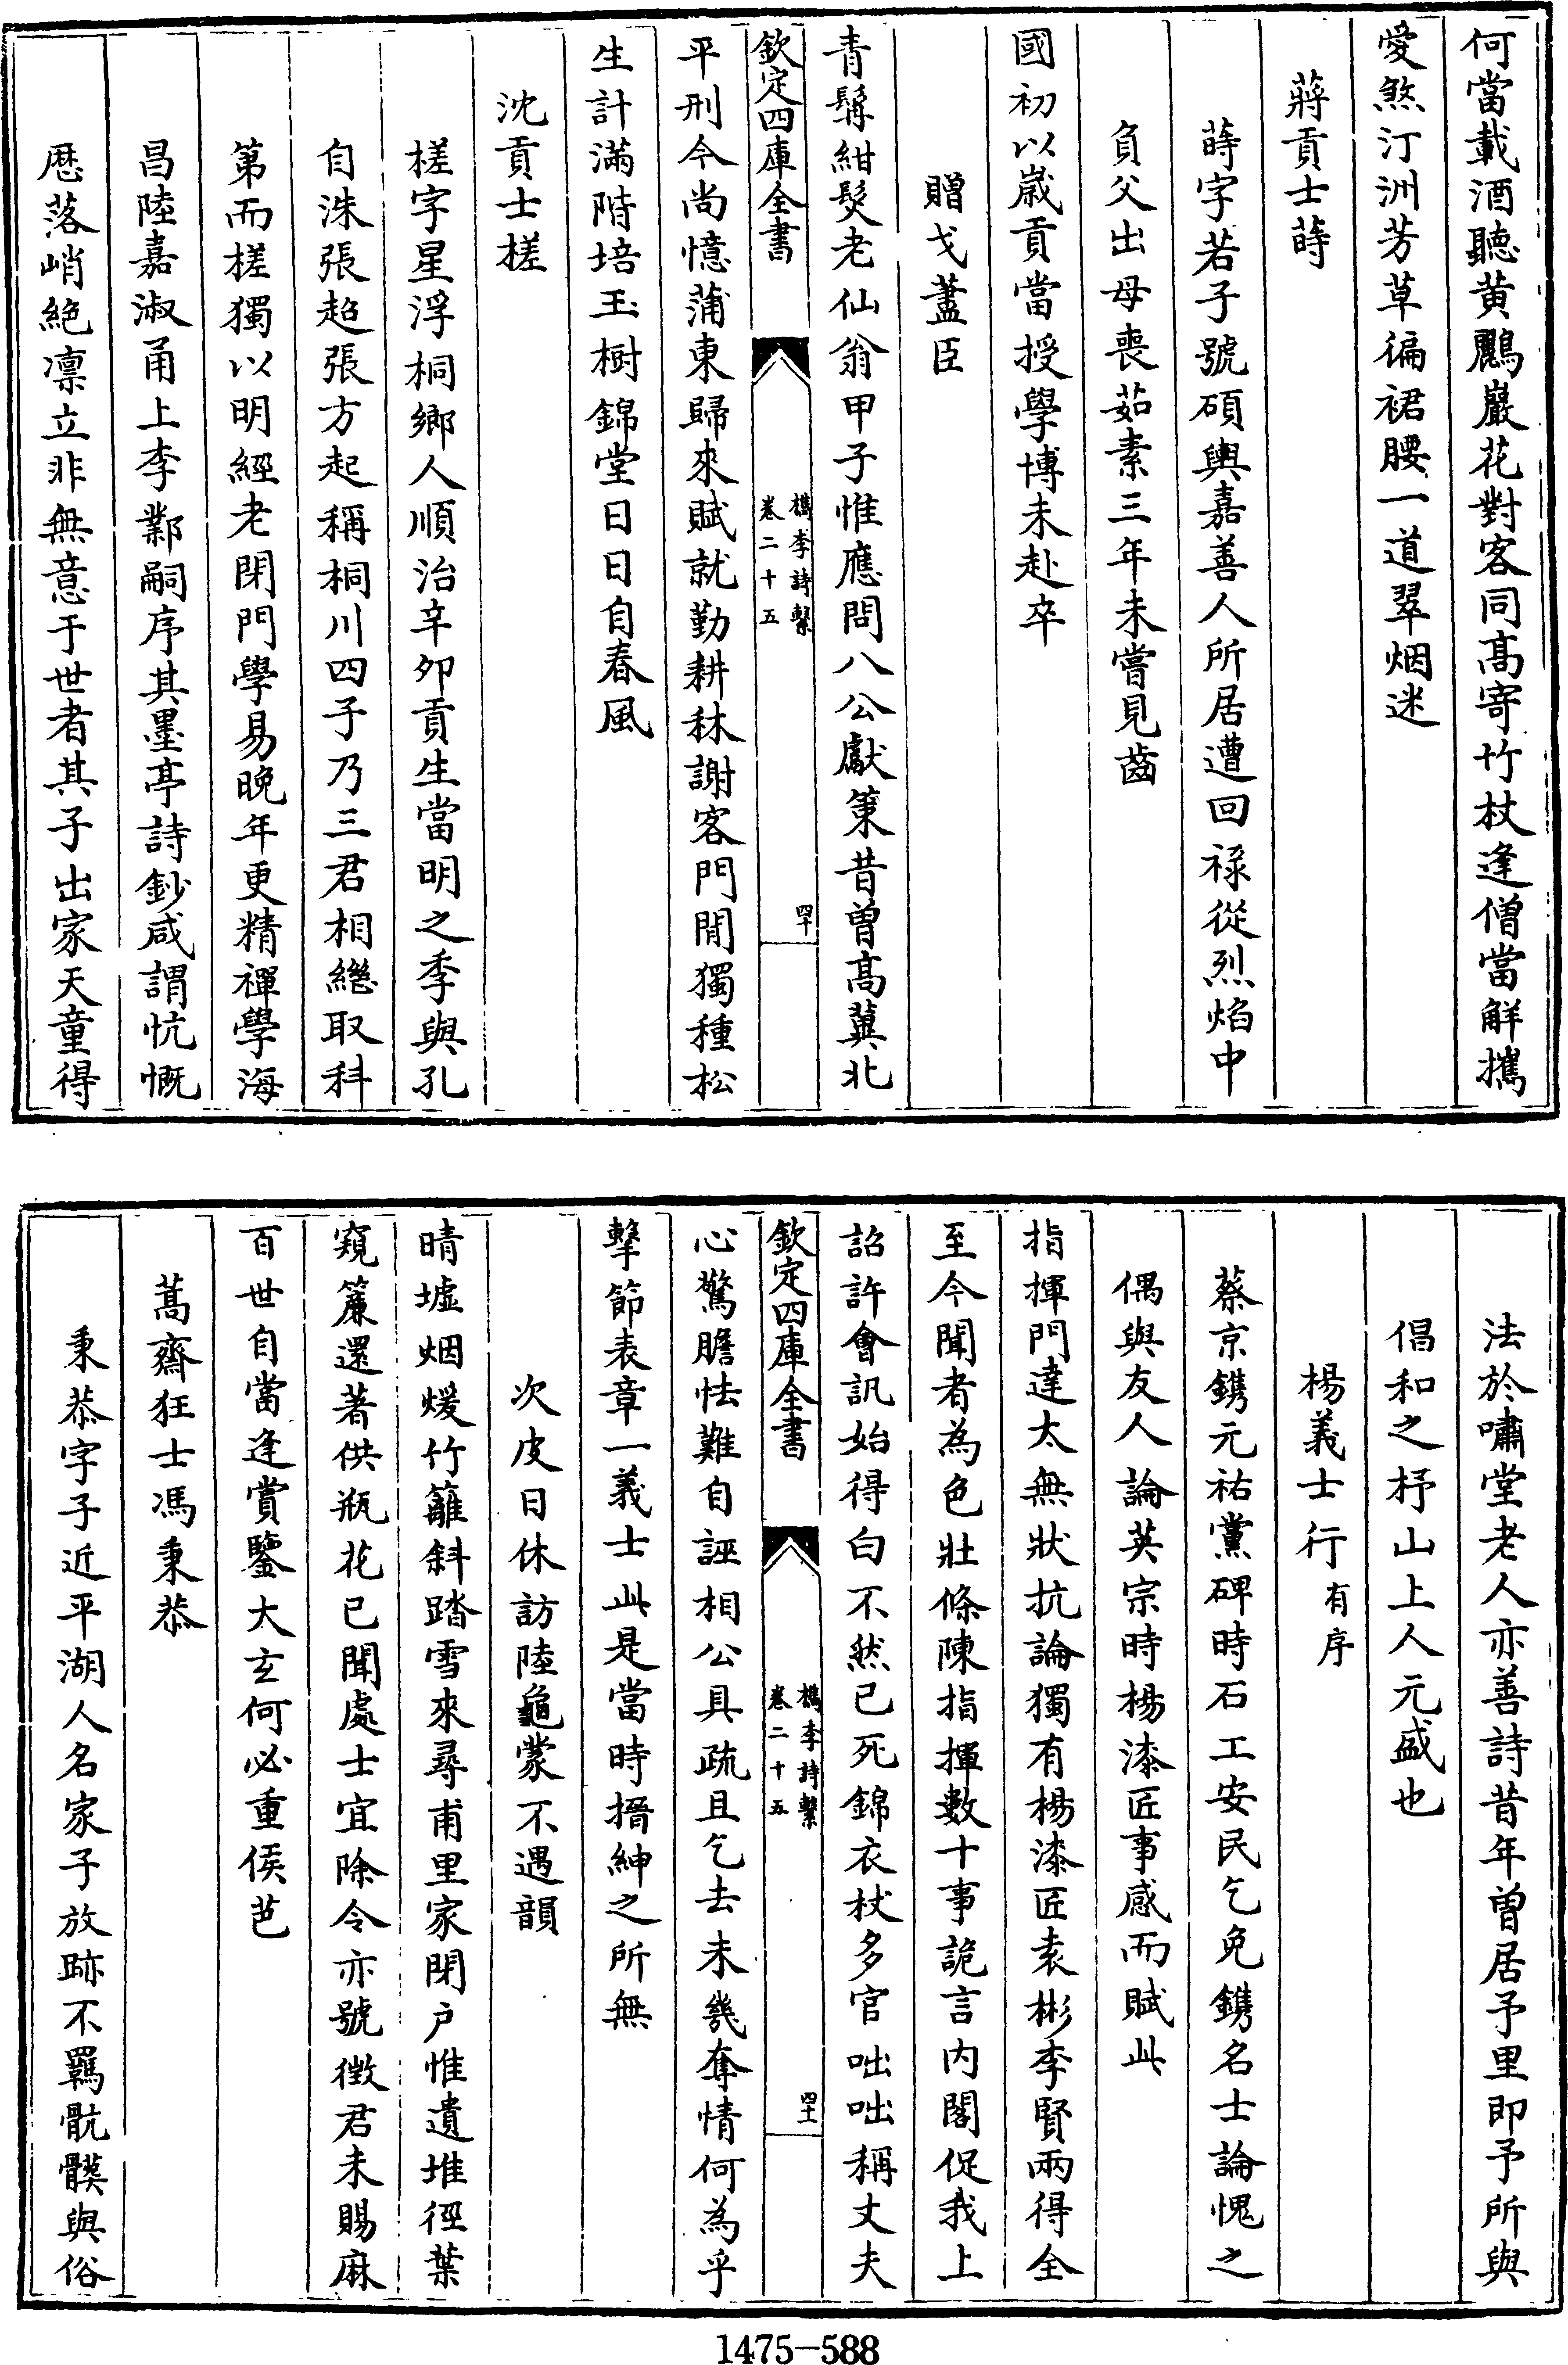 何當載酒聽黄鸝巖花對客同髙寄竹杖逢僧當解攜
愛煞汀洲芳草徧裙腰一道翠烟迷
蔣貢士蒔
蒔字若子號碩輿嘉善人所居遭回禄從烈焰中
負父出母喪茹素三年未嘗見齒
國初以嵗貢當授學博未赴卒
贈戈藎臣
青鬅紺髮老仙翁甲子惟應問八公獻策昔曽髙冀北
欽定四庫全書
檇李詩繫
卷二十五
四十
平刑今尚憶蒲東歸來賦就勤耕秫謝客門閒獨種松
生計滿階培玉樹錦堂日日自春風
沈貢士槎
槎字星浮桐鄉人順治辛夘貢生當明之季與孔
自洙張超張方起稱桐川四子乃三君相繼取科
第而槎獨以明經老閉門學易晚年更精禪學海
昌陸嘉淑甬上李鄴嗣序其墨亭詩鈔咸謂忼慨
歴落峭絶凛立非無意于世者其子出家天童得
法於嘯堂老人亦善詩昔年曽居予里即予所與
倡和之杼山上人元盛也
楊義士行有序
蔡京鐫元祐黨碑時石工安民乞免鐫名士論愧之
偶與友人論英宗時楊漆匠事感而賦此
指揮門達太無狀抗論獨有楊漆匠袁彬李賢兩得全
至今聞者為色壯條陳指揮數十事詭言内閣促我上
詔許會訊始得白不然已死錦衣杖多官咄咄稱丈夫
欽定四庫全書
檇李詩繫
卷二十五
四十一
心驚膽怯難自誣相公具疏且乞去未幾奪情何為乎
擊節表章一義士此是當時搢紳之所無
次皮日休訪陸龜蒙不遇韻
晴墟烟煖竹籬斜踏雪來尋甫里家閉户惟遺堆徑葉
窺簾還著供瓶花已聞處士宜除令亦號徴君未賜麻
百世自當逢賞鑒太玄何必重侯芭
蒿齋狂士馮秉恭
秉恭字子近平湖人名家子放跡不羈骯髒與俗
1475-588